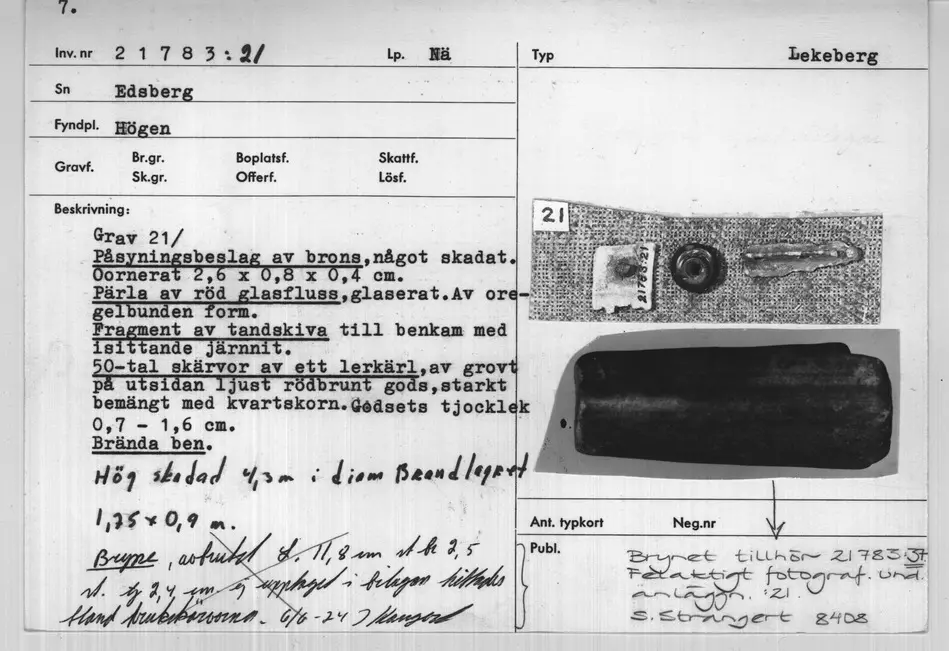 7.
Inv. nr 2 1 7 8 3 : 21 Lp. Nä
Typ Lekeberg
Sn Edsberg
Fyndpl. Högen
Gravf. Br.gr. Boplatsf. Skattf.
Sk.gr. Offerf. Lösf.
Beskrivning:
Grav 21/
Påsyningsbeslag av brons,något skadat.
Oornerat 2,6 x 0,8 x 0,4 cm.
Pärla av röd glasfluss,glaserat.Av ore-
gelbunden form.
Fragment av tandskiva till benkam med
isittande järnnit.
50-tal skärvor av ett lerkärl,av grovt
på utsidan ljust rödbrunt gods,starkt
bemängt med kvartskorn.Godsets tjocklek
0,7 - 1,6 cm.
Brända ben.
Hög skadad 4,3 m i diam Brandlagret
1,25 x 0,9 m.
Bryne, 11,8 cm st br 2,5
st. tj 2,4 cm ej upptaget i bilagan hittades
bland 6/6-24
21
21783:21
Ant. typkort Neg.nr
Publ.
Brynet tillhör 21783:37
Felaktigt fotograf. und.
anläggn. :21.
S. Strangert 8408